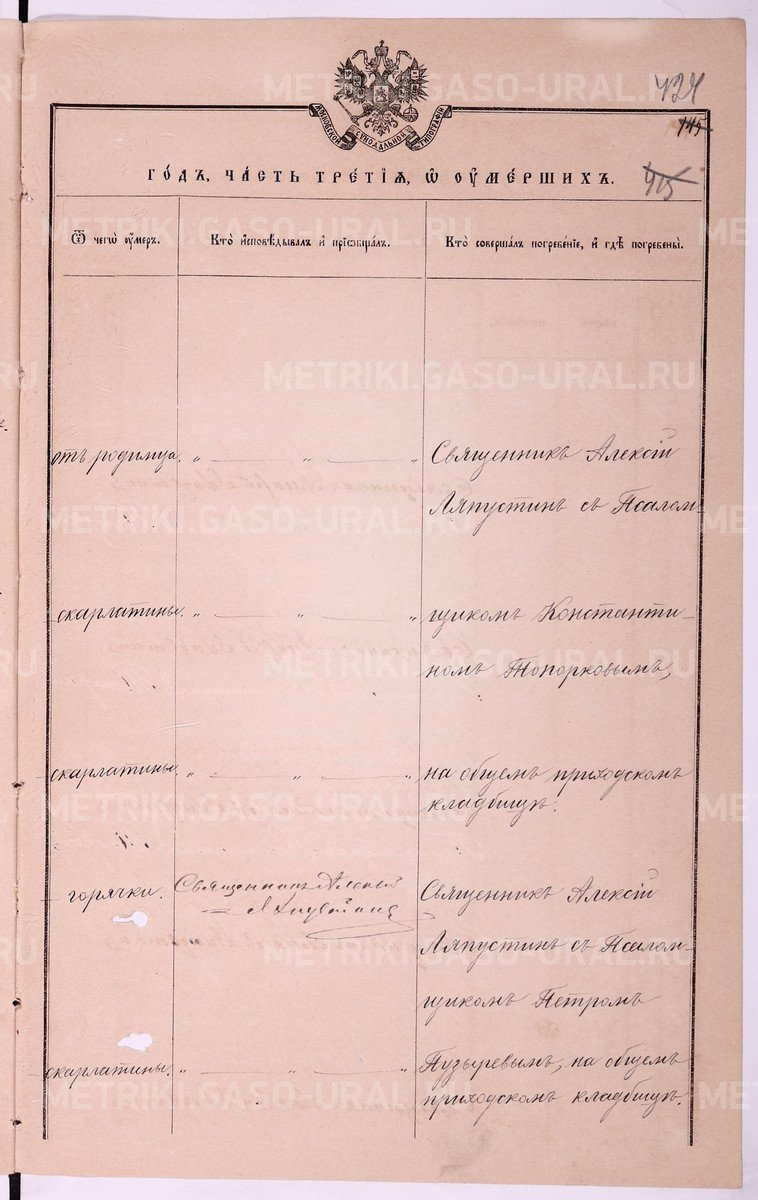 424
145
415
МОСКОВСКОЙ СѴНОДАЛЬНОЙ ТИПОГРАФІИ
ГО́ДЪ, ЧА́СТЬ ТРЕ́ТІѦ, Ѡ҆ ОУ҆МЕ́РШИХЪ.
Ѿ чегѡ̀ оу҆́меръ.
Кто̀ и҆сповѣ́дывалъ и҆ прїѡбща́лъ.
Кто̀ соверша́лъ погребе́нїе, и҆ гдѣ̀ погребены̀.
отъ родимца. „ — „ — „ Священникъ Алексій
Ляпустинъ съ Псалом-
скарлатины. „ — „ — „ щикомъ Константи-
номъ Топорковымъ,
скарлатины. „ — „ — „ на общемъ приходскомъ
кладбищѣ.
горячки. Священникъ Алексій Священникъ Алексій
Ляпустинъ
Ляпустинъ съ Псалом-
щикомъ Петромъ
скарлатины. „ — „ — „ Пузыревымъ, на общемъ
приходскомъ кладбищѣ.
METRIKI.GASO-URAL.RU